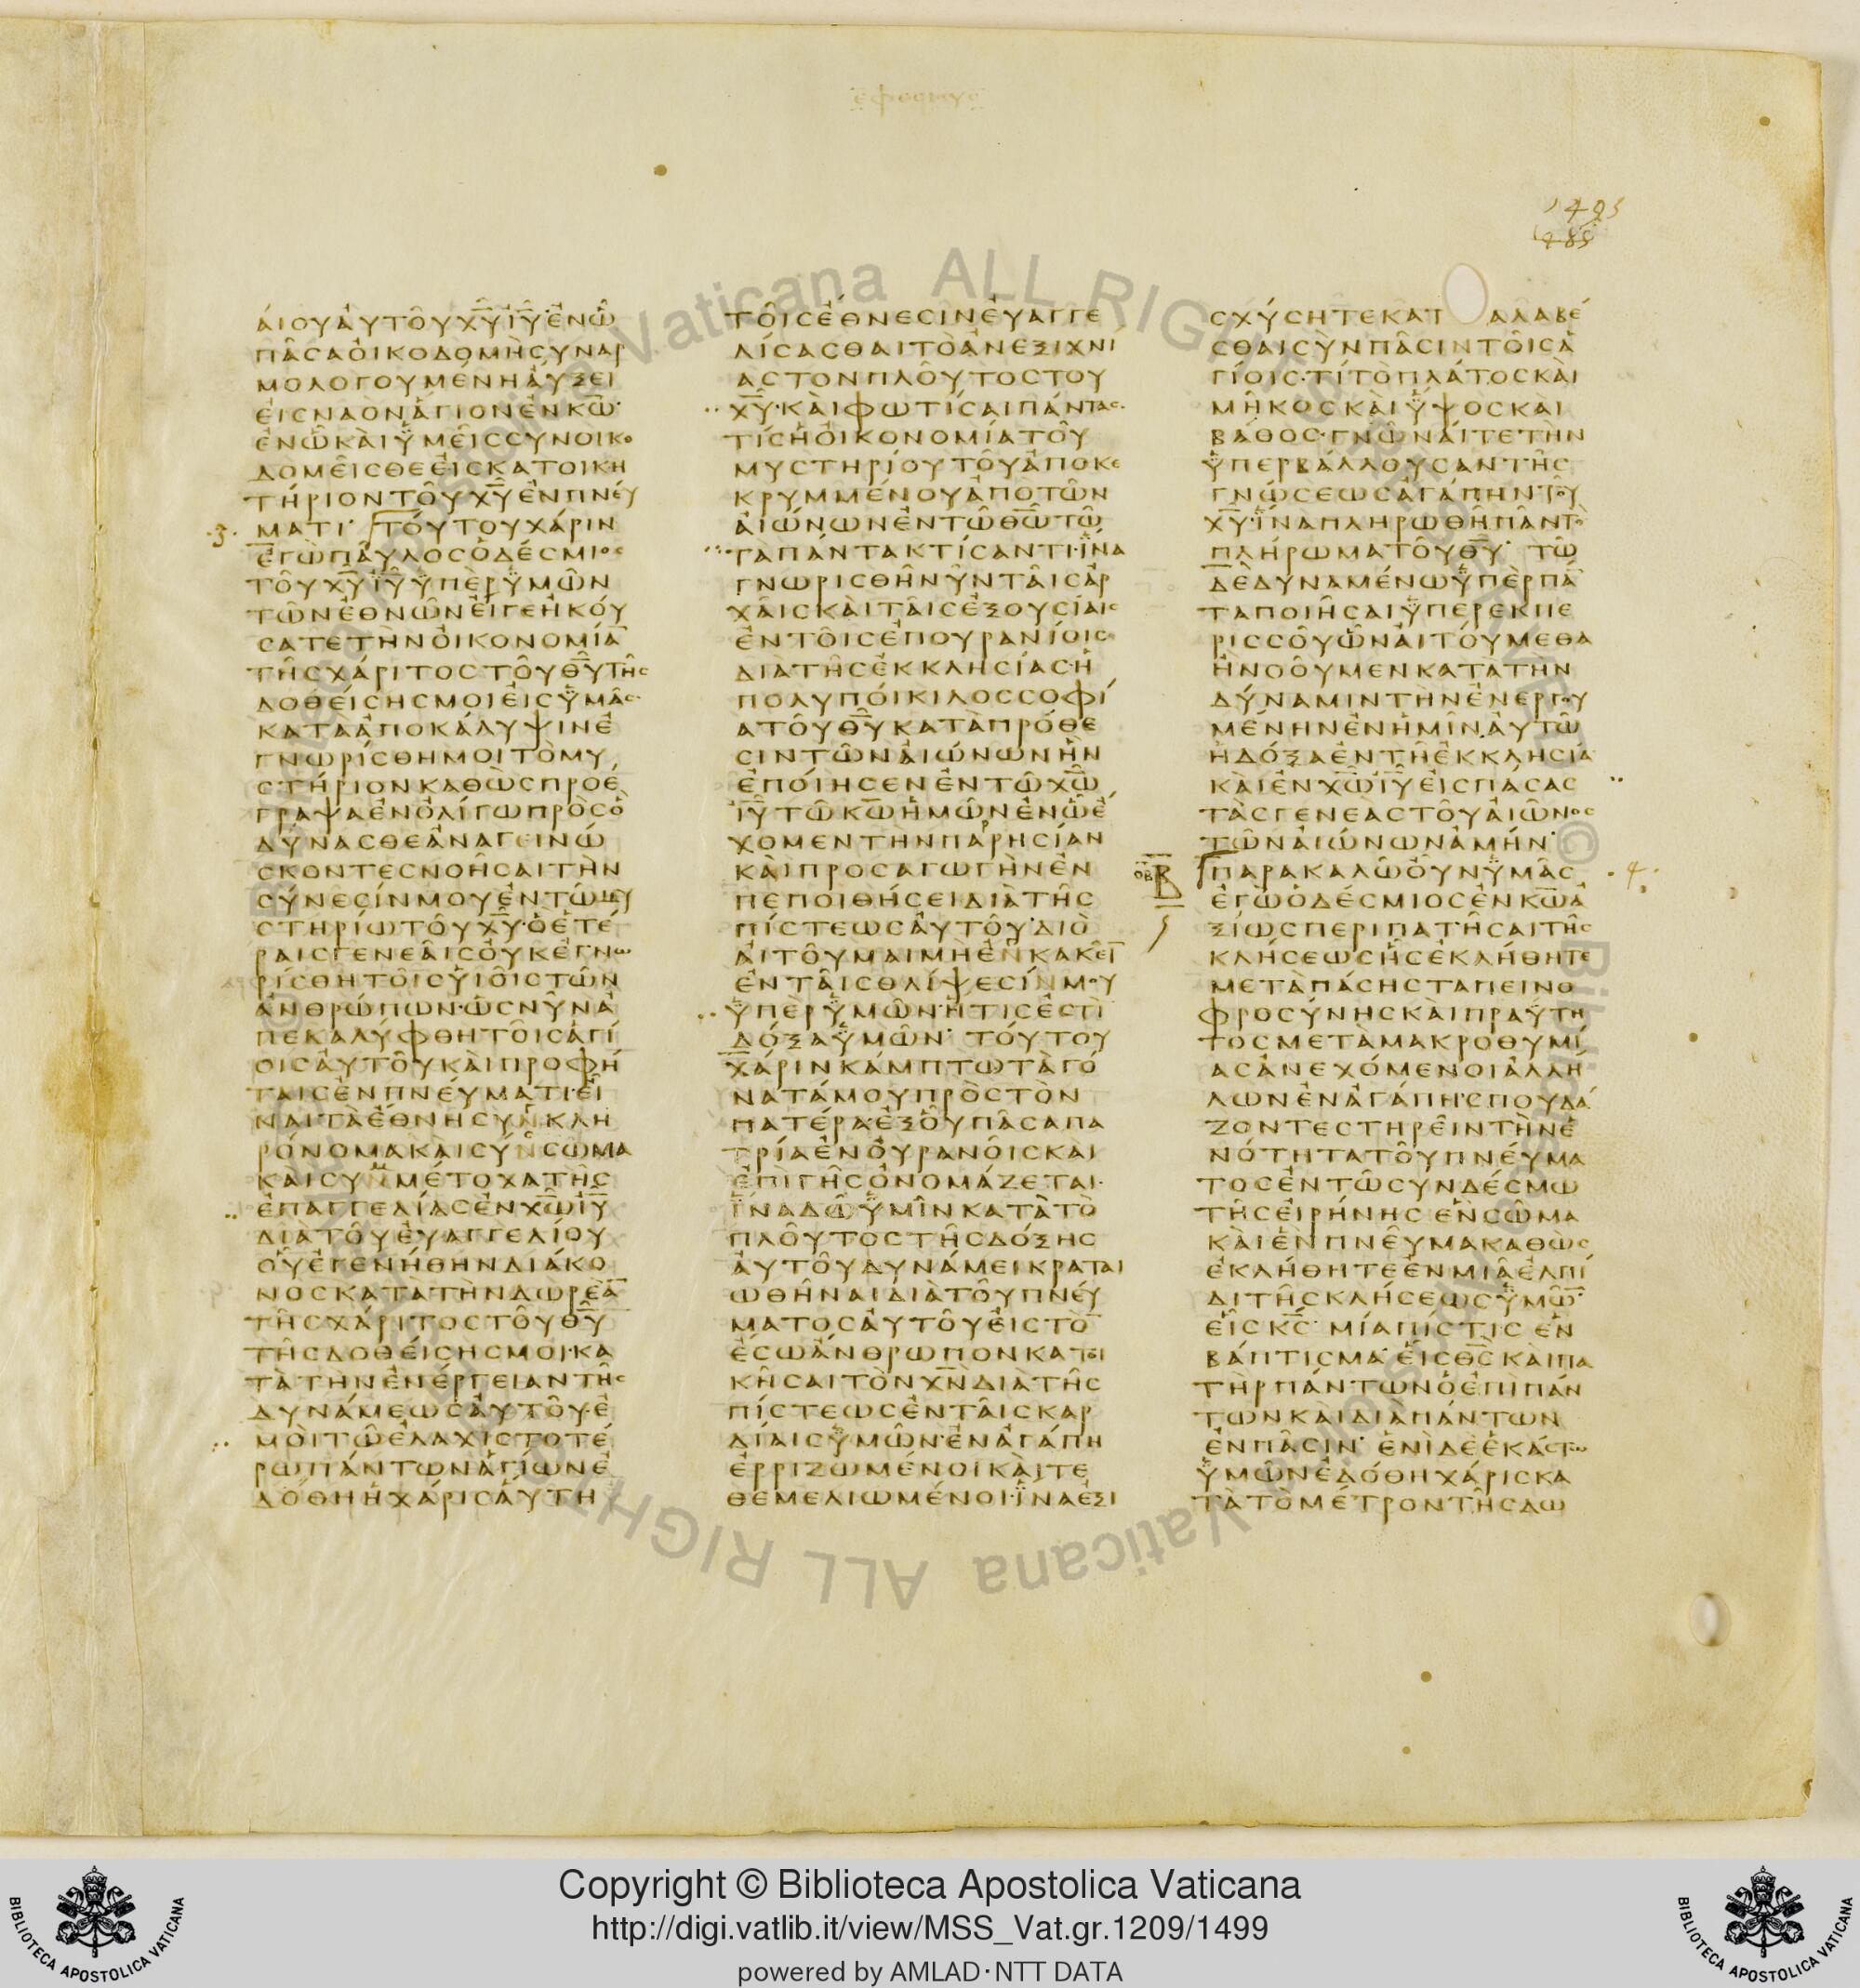 εφεσιους
1493
ἀιουἀυτοῦχ̅υ̅ι̅υ̅·ἐνὧ
πᾶσαὀικοδομὴσυναρ
μολογουμένηἀυξει
ἐισναὸνἅγιονἐνκ̅ω̅·
ἐνὧκὰιὑμεῖςσυνοικο
δομεῖσθεἐισκατοικη
τήριοντοῦχ̅υ̅ἐνπνέυ
ματι· τόυτουχάριν
ἐγὼπᾶυλοσὁδέσμιος
τοῦχ̅υ̅ι̅υ̅ὑπὲρὑμῶν
τῶνἐθνῶνἐίγεἠκόυ
σατετὴνὀικονομία̅
τῆσχάριτοστοῦθ̅υ̅τῆς
δοθείσησμοιἐισὑμᾶς·
κατὰἀποκάλυψινἐ
γνωρίσθημοιτὸμυ
στήριονκαθὼσπροέ
γραψαἐνὀλίγωπρὸσὃ
δύνασθεἀναγεινώ
σκοντεσνοῆσαιτὴν
σύνεσίνμουἐντῶμυ
στηρίωτοῦχ̅υ̅·ὃἑτέ
ραισγενεαῖσὀυκἐγνω
ρίσθητοῖσὑιοῖστῶν
ἀνθρώπων·ὡσνῦνἀ
πεκαλύφθητοῖσἁγί
οισἀυτοῦκὰιπροφή
ταισἐνπνέυματι·εἶ
ναιτὰἔθνησυνκλη
ρόνομακὰισύνσωμα
κὰισυνμέτοχατῆς
ἐπαγγελίασἐνχ̅ω̅ι̅υ̅
διὰτοῦἐυαγγελίου
οὗἐγενήθηνδιάκο
νοσκατὰτὴνδωρεὰ̅
τῆσχάριτοστοῦθ̅υ̅
τῆσδοθείσησμοι·κα
τὰτὴνἐνέργειαντῆς
δυνάμεωσἀυτοῦ·ἐ
μὸιτῶἐλαχιστοτέ
ρωπάντωνἁγίωνἐ
δόθηἡχάρισἁύτη
τοῖσἔθνεσινἐυαγγε
λίσασθαιτὸἀνεξιχνί
αστονπλοῦτοστου
χ̅υ̅·κὰιφωτίσαιπάντας·
τίσἡὀικονομίατοῦ
μυστηρίουτοῦἀποκε
κρυμμένουἀπὸτῶν
ἀιώνωνἐντῶθ̅ω̅τῶ
τὰπάντακτίσαντι·ἵνα
γνωρισθῆνῦνταῖσἀρ
χαῖσκὰιταῖσἐξουσίαις
ἐντοῖσἐπουρανίοις
διὰτῆσἐκκλησίασ·ἡ
πολυπόικιλοσσοφί
ατοῦθ̅υ̅κατὰπρόθε
σιντῶνἀιώνωνἣν
ἐποίησενἐντῶχ̅ω̅
ι̅υ̅τῶκ̅ω̅ἡμῶνἐνὧἔ
χομεντὴνπαρησίαν
κὰιπροσαγωγὴνἐν
πεποιθήσειδιὰτῆς
πίστεωσἀυτοῦ·διὸ
ἀιτοῦμαιμὴἐνκακεῖ̅
ἐνταῖσθλίψεσίνμου
ὑπὲρὑμῶν·ἥτισἐστὶ
δόξαὑμῶν· τόυτου
χάρινκάμπτωτὰγό
νατάμουπρὸστὸν
πατέραἐξοὗπᾶσαπα
τρίαἐνὀυρανοῖσκαι
ἐπὶγῆσὀνομάζεται·
ἵναδῶὑμῖνκατὰτὸ
πλοῦτοστῆσδόξης
ἀυτοῦδυνάμεικραται
ωθῆναιδιὰτοῦπνέυ
ματοσἀυτοῦἐιστὸ̅
ἔσωἄνθρωπονκατοι
κῆσαιτὸνχ̅ν̅διὰτῆς
πίστεωσἐνταῖσκαρ
δίαισὑμῶν·ἐνἀγάπη
ἐρριζωμένοικὰιτε
θεμελιωμένοι·ἵναἐξι
σχύσητεκατ αλαβέ
σθαισὺνπᾶσιντοῖσἁ
γίοισ·τίτὸπλάτοσκὰι
μῆκοσκὰιὕψοσκαι
βάθοσ·γνῶναίτετὴν
ὑπερβάλλουσαντῆς
γνώσεωσἀγάπηντοῦ
χ̅υ̅·ἵναπληρωθῆπᾶντὸ
πλήρωματοῦθ̅υ̅· τῶ
δὲδυναμένωὑπὲρπά̅
ταποιῆσαιὑπερεκπε
ρισσοῦὧνἀιτόυμεθα
ἢνοοῦμενκατὰτὴν
δύναμιντὴνἐνεργου
μένηνἐνἡμῖν·ἀυτῶ
ἡδόξαἐντῆἐκκλησία
κὰιἐνχ̅ω̅ι̅υ̅ἐισπάσας
τὰσγενεὰστοῦἀιῶνος
τῶνἀιώνωνἀμήν·
παρακαλῶὀῦνὑμᾶς
ἐγὼὁδέσμιοσἐνκ̅ω̅ἀ
ξίωσπεριπατῆσαιτῆς
κλήσεωσἧσἐκλήθητε
μετὰπάσησταπεινο
φροσύνησκὰιπραύτη
τοσμετὰμακροθυμί
ασἀνεχόμενοιἀλλή
λωνἐνἀγάπη·σπουδά
ζοντεστηρεῖντὴνἑ
νότητατοῦπνέυμα
τοσἐντῶσυνδέσμω
τῆσἐιρήνησ·ἓνσῶμα
κὰιἓνπνεῦμακαθὼς
ἐκλήθητεἐνμιᾶἐλπί
διτῆσκλήσεωσὑμῶ̅·
εἷσκ̅σ̅· μίαπίστισ·ἓν
βάπτισμα·εἷσθ̅σ̅κὰιπα
τὴρπάντωνὁἐπὶπάν
τωνκὰιδιαπάντων
ἐνπᾶσιν· ἑνὶδὲἑκάστω
ὑμῶνἐδόθηχάρισκα
τὰτὸμέτροντῆσδω
Copyright © Biblioteca Apostolica Vaticana
http://digi.vatlib.it/view/MSS_Vat.gr.1209/1499
powered by AMLAD·NTT DATA
BIBLIOTECA APOSTOLICA VATICANA
BIBLIOTECA APOSTOLICA VATICANA